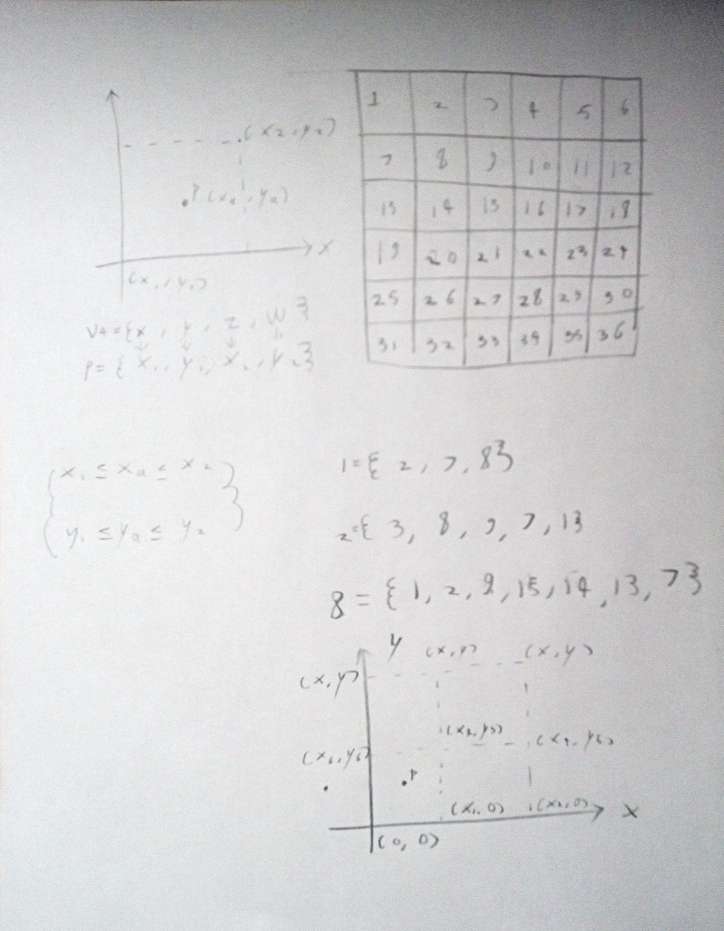 (x₂, y₂)
P(xₐ, yₐ)
X
(x₁, y₁)
V4={x, y, z, w}
P={x₁, y₁, x₂, y₂}
1 2 3 4 5 6
7 8 9 10 11 12
13 14 15 16 17 18
19 20 21 22 23 24
25 26 27 28 29 30
31 32 33 34 35 36
x₁ ≤ xₐ ≤ x₂
y₁ ≤ yₐ ≤ y₂
1={2, 7, 8}
2={3, 8, 9, 7, 13
8={1, 2, 9, 15, 14, 13, 7}
Y
(x, y) (x, y)
(x, y)
(x₆, y₆)
P
(x₁, 0) (x₂, 0)
X
(0, 0)